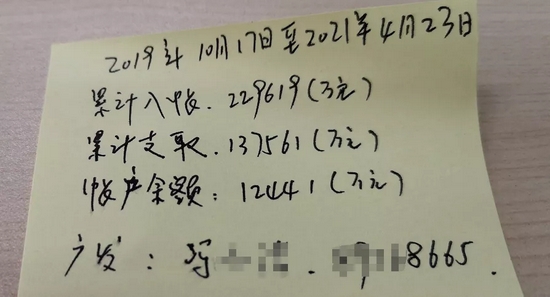 2019年10月17日至2021年4月23日
累计入帐.229619(万元)
累计支取.137561(万元)
帐户余额:12441(万元)
广发:冯 . 8665.